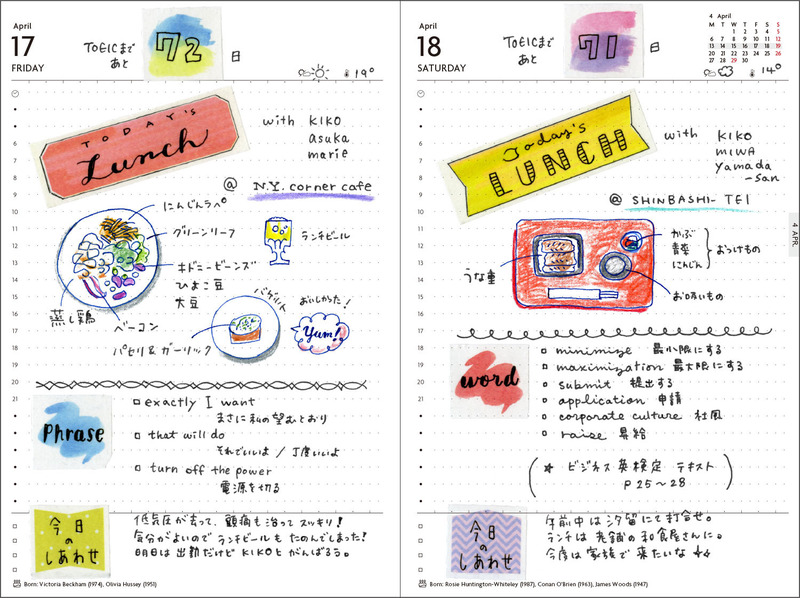 April
17
FRIDAY
TOEICまで
あと
72
日
19°
TODAY'S
Lunch
with KIKO
asuka
marie
@ N.Y. corner cafe
にんじんラペ
グリーンリーフ
キドニービーンズ
ひよこ豆
大豆
蒸し鶏
ベーコン
ランチビール
バゲット
パセリ&ガーリック
おいしかった!
Yum!
5
6
7
8
9
10
11
12
13
14
15
16
17
18
19
20
21
Phrase
exactly I want
まさに私の望むとおり
that will do
それでいいよ / 丁度いいよ
turn off the power
電源を切る
今日
の
しあわせ
低気圧が去って、頭痛も治ってスッキリ!
気分がよいのでランチビールもたのんでしまった!
明日は出勤だけどKIKOとがんばろう。
Born: Victoria Beckham (1974), Olivia Hussey (1951)
April
18
SATURDAY
TOEICまで
あと
71
日
4 April
M T W T F S S
1 2 3 4 5
6 7 8 9 10 11 12
13 14 15 16 17 18 19
20 21 22 23 24 25 26
27 28 29 30
14°
Today's
LUNCH
with KIKO
MIWA
Yamada
-san
@ SHINBASHI-TEI
4 APR.
うな重
かぶ
青菜
にんじん
おつけもの
お吸いもの
5
6
7
8
9
10
11
12
13
14
15
16
17
18
19
20
21
word
minimize 最小限にする
maximization 最大限にする
submit 提出する
application 申請
corporate culture 社風
raise 昇給
(★ ビジネス英検定 テキスト
P25~28)
今日
の
しあわせ
午前中は汐留にて打合せ。
ランチは老舗の和食屋さんに。
今度は家族で来たいな ★★
Born: Rosie Huntington-Whiteley (1987), Conan O'Brien (1963), James Woods (1947)